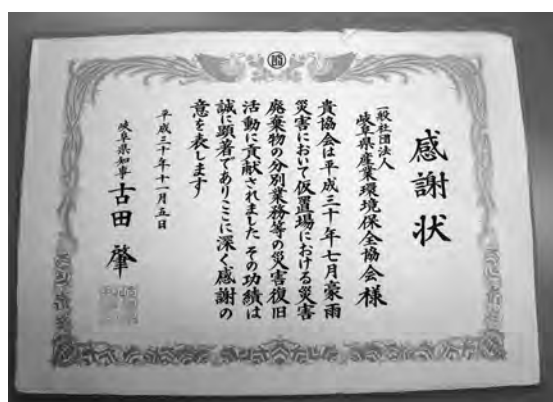 感謝状
一般社団法人
岐阜県産業環境保全協会 様
貴協会は平成三十年七月豪雨
災害において仮置場における災害
廃棄物の分別業務等の災害復旧
活動に貢献されました その功績は
誠に顕著でありここに深く感謝の
意を表します
平成三十年十一月五日
岐阜県知事 古田 肇